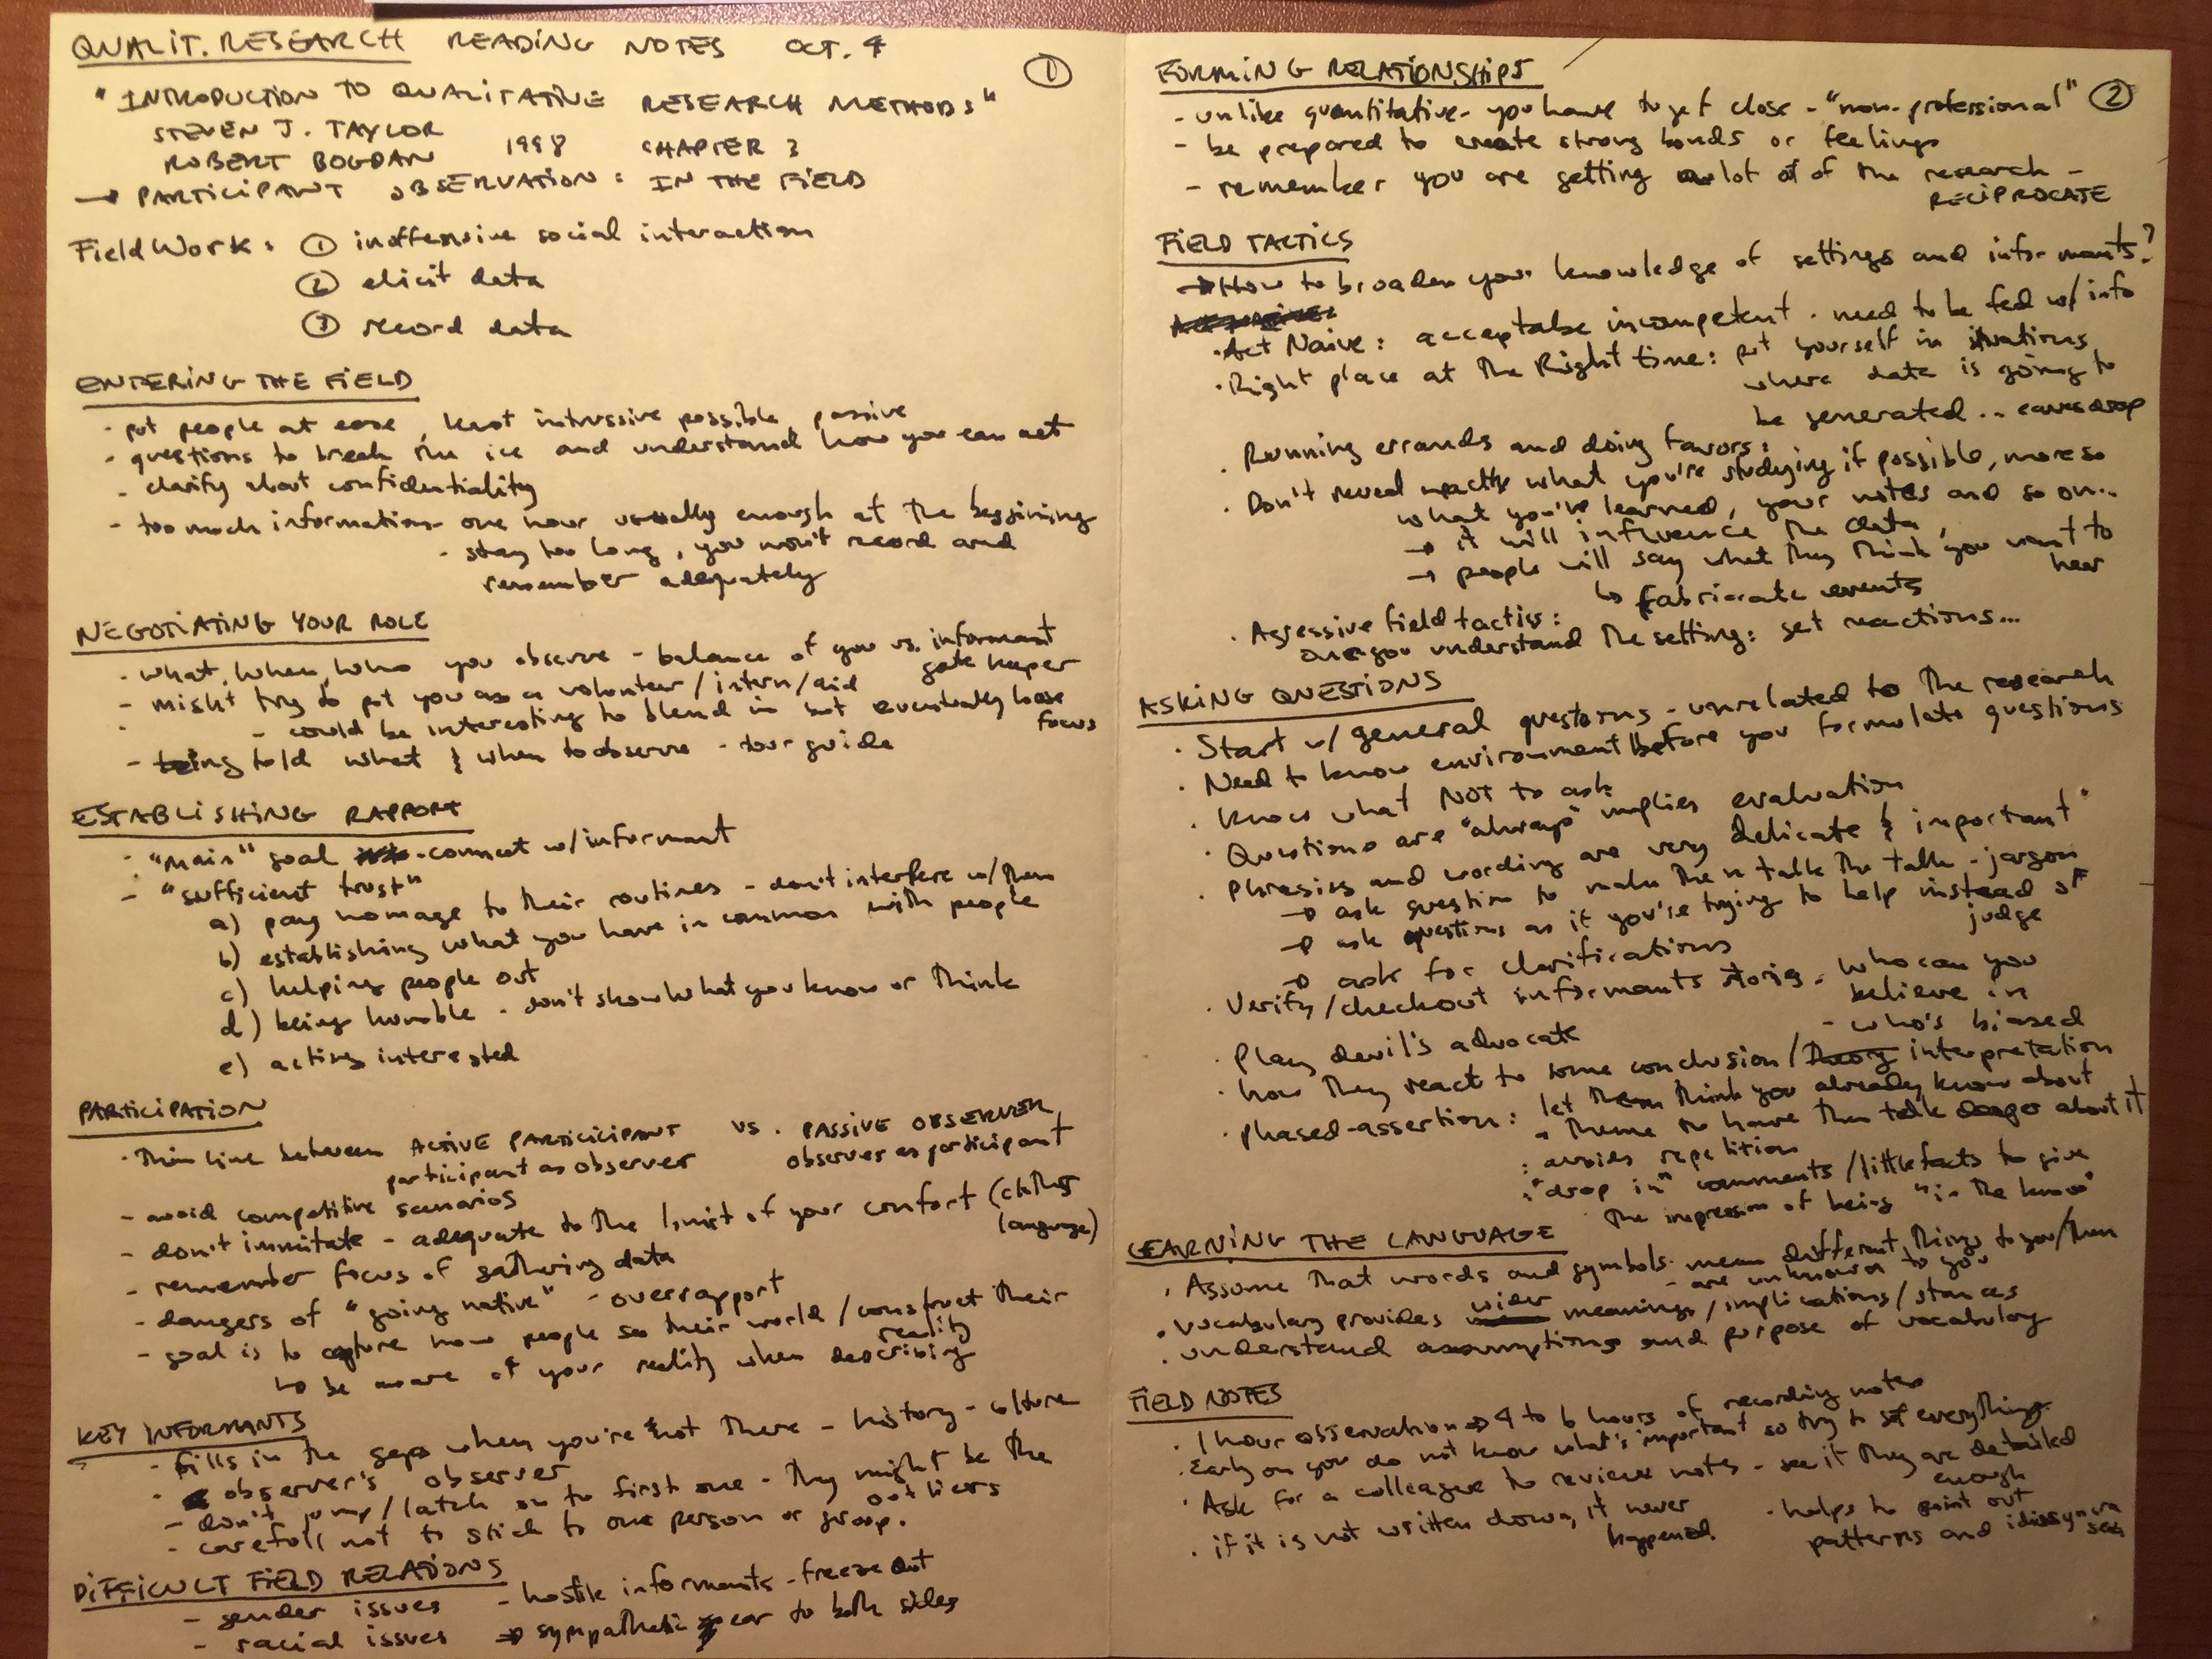 QUALIT. RESEARCH READING NOTES OCT. 4
①
"INTRODUCTION TO QUALITATIVE RESEARCH METHODS"
STEVEN J. TAYLOR
ROBERT BOGDAN 1998 CHAPTER 3
→ PARTICIPANT OBSERVATION: IN THE FIELD
Field Work: ① inoffensive social interaction
② elicit data
③ record data
ENTERING THE FIELD
- put people at ease, least intrussive possible, passive
- questions to break the ice and understand how you can act
- clarify about confidentiality
- too much information - one hour usually enough at the beggining
- stay too long, you won't record and
remember adequately
NEGOTIATING YOUR ROLE
- what, when, who you observe - balance of you vs. informant
gate keeper
- might try to put you as a volunteer/intern/aid
- could be interesting to blend in but eventually loose
focus
- being told what & when to observe - tour guide
ESTABLISHING RAPPORT
- "main" goal - connect w/ informant
- "sufficient trust"
a) pay homage to their routines - don't interfere w/ them
b) establishing what you have in common with people
c) helping people out
d) being humble - don't show what you know or think
e) acting interested
PARTICIPATION
- Thin line between ACTIVE PARTICICIPANT VS. PASSIVE OBSERVER
participant as observer observer as participant
- avoid competitive scenarios
- don't immitate - adequate to the limit of your comfort (clothing
(language)
- remember focus of gathering data
- dangers of "going native" - overrapport
- goal is to capture how people see their world/construct their
reality
↳ be aware of your reality when describing
KEY INFORMANTS
- fills in the gaps when you're not there - history - culture
- observer's observer
- don't jump/latch on to first one - they might be the
outliers
- carefull not to stick to one person or group.
DIFFICULT FIELD RELATIONS
- gender issues - hostile informants - freeze out
- racial issues → sympathetic ear to both sides
FORMING RELATIONSHIPS
②
- unlike quantitative - you have to get close - "non-professional"
- be prepared to create strong bonds or feelings
- remember you are getting a lot of of the research -
RECIPROCATE
FIELD TACTICS
→ How to broaden your knowledge of settings and informants?
· Act Naive: acceptable incompetent · need to be fed w/ info
· Right place at the Right time: put yourself in situations
where data is going to
be generated .. eavesdrop
· Running errands and doing favors:
· Don't reveal exactly what you're studying if possible, more so
what you've learned, your notes and so on...
→ it will influence the data,
→ people will say what they think you want to
hear
↳ fabricate events
· Agressive field tactics:
once you understand the setting: get reactions...
ASKING QUESTIONS
· Start w/ general questions - unrelated to the research
· Need to know environment before you formulate questions
· Know what NOT to ask
· Questions are "always" implies evaluation
· Phrasing and wording are very delicate & important
→ ask question to make them talk the talk - jargon
→ ask questions as if you're trying to help instead of
judge
→ ask for clarifications
· Verify/checkout informants stories - who can you
believe in
- who's biased
· Play devil's advocate
· how they react to some conclusion/theory interpretation
· phased-assertion: let them think you already know about
a theme to have them talk deeper about it
: avoids repetition
: "drop in" comments/little facts to give
the impression of being "in the know"
LEARNING THE LANGUAGE
· Assume that words and symbols mean different things to you/them
- are unknown to you
· vocabulary provides wider meanings/implications/stances
· understand assumptions and purpose of vocabulary
FIELD NOTES
· 1 hour observation → 4 to 6 hours of recording notes
· Early on you do not know what's important so try to get everything
· Ask for a colleague to review notes - see if they are detailed
enough
· if it is not written down, it never
happened.
· helps to point out
patterns and